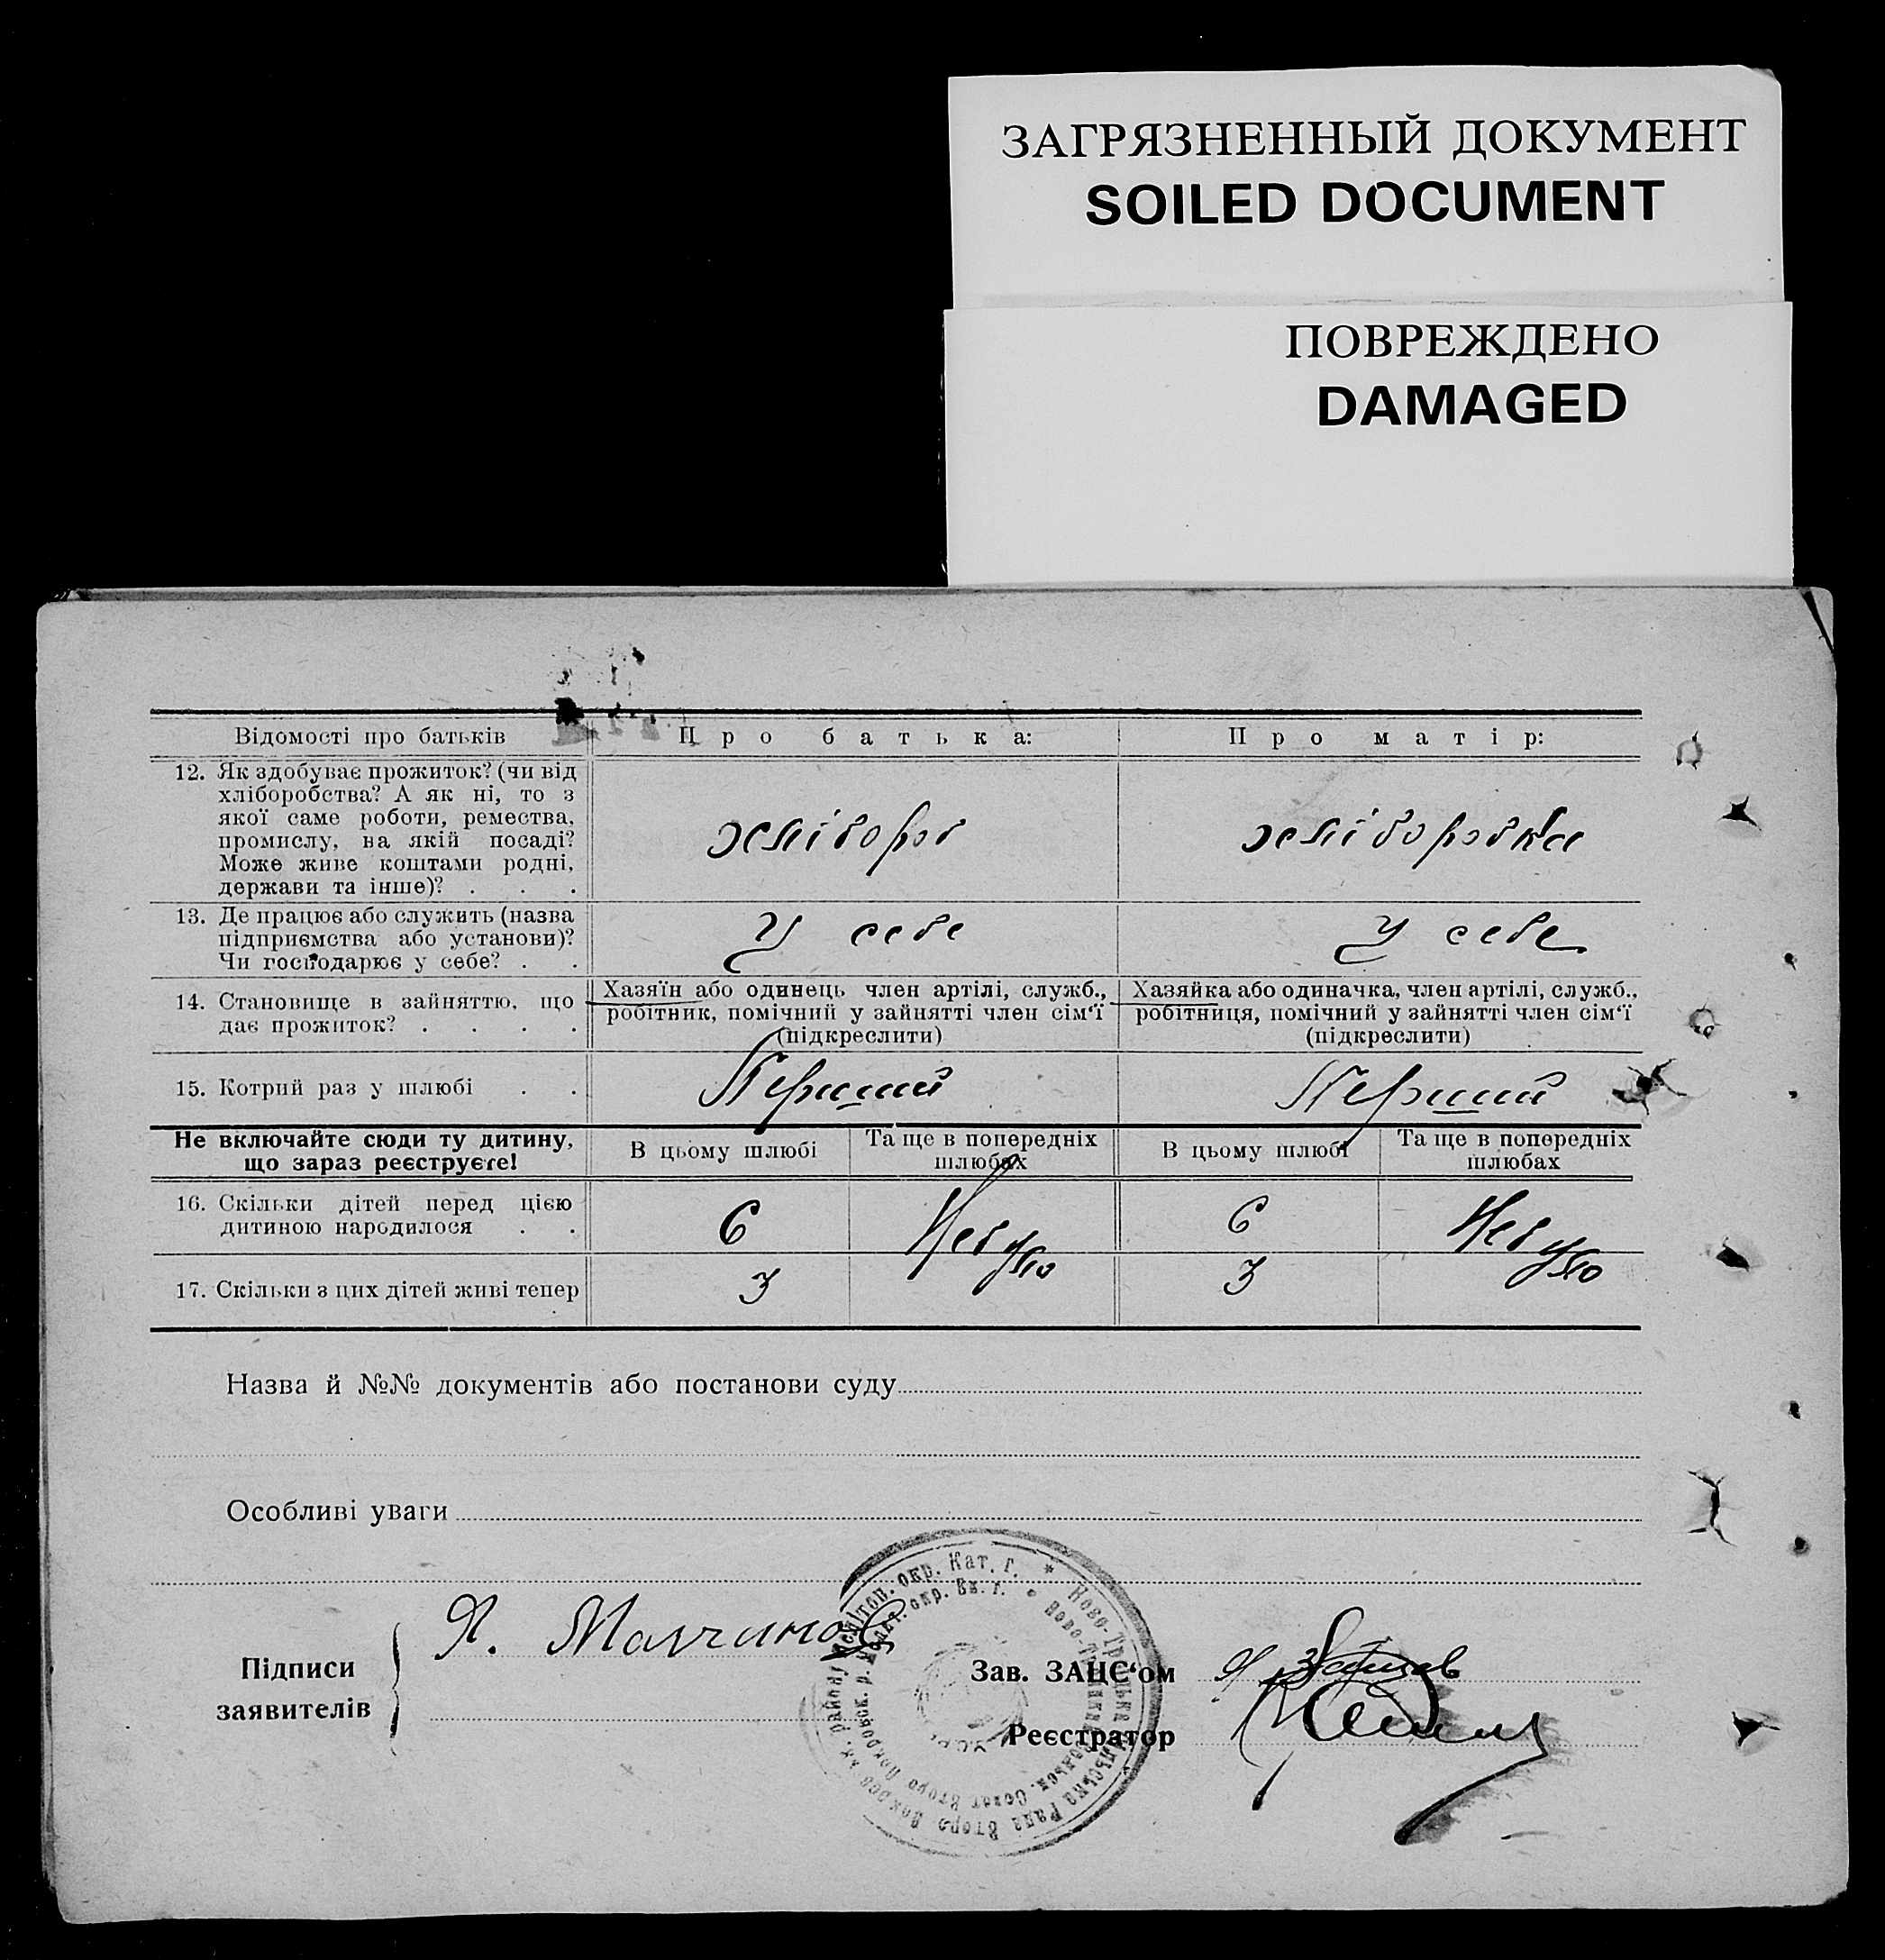 ЗАГРЯЗНЕННЫЙ ДОКУМЕНТ
SOILED DOCUMENT
ПОВРЕЖДЕНО
DAMAGED
Відомості про батьків
Про батька:
Про матір:
12. Як здобуває прожиток? (чи від
хліборобства? А як ні, то з
якої саме роботи, ремества,
промислу, на якій посаді?
Може живе коштами родні,
держави та інше)? . . .
хлібороб
хліборобка
13. Де працює або служить (назва
підприємства або установи)?
Чи господарює у себе? . .
У себе
У себе
14. Становище в зайняттю, що
дає прожиток? . . . .
Хазяїн або одинець член артілі, служб.,
робітник, помічний у зайнятті член сім'ї
(підкреслити)
Хазяйка або одиначка, член артілі, служб.,
робітниця, помічний у зайнятті член сім'ї
(підкреслити)
15. Котрий раз у шлюбі . .
Перший
Перший
Не включайте сюди ту дитину,
що зараз реєструєте!
В цьому шлюбі
Та ще в попередніх
шлюбах
В цьому шлюбі
Та ще в попередніх
шлюбах
16. Скільки дітей перед цією
дитиною народилося . .
6
Небуло
6
Небуло
17. Скільки з цих дітей живі тепер
3
3
Назва й №№ документів або постанови суду
Особливі уваги
Підписи
заявителів
Я.
Зав. ЗАЦС'ом
Реєстратор
окр. Кат. г. * Ново-Троїцька Сільська Рада